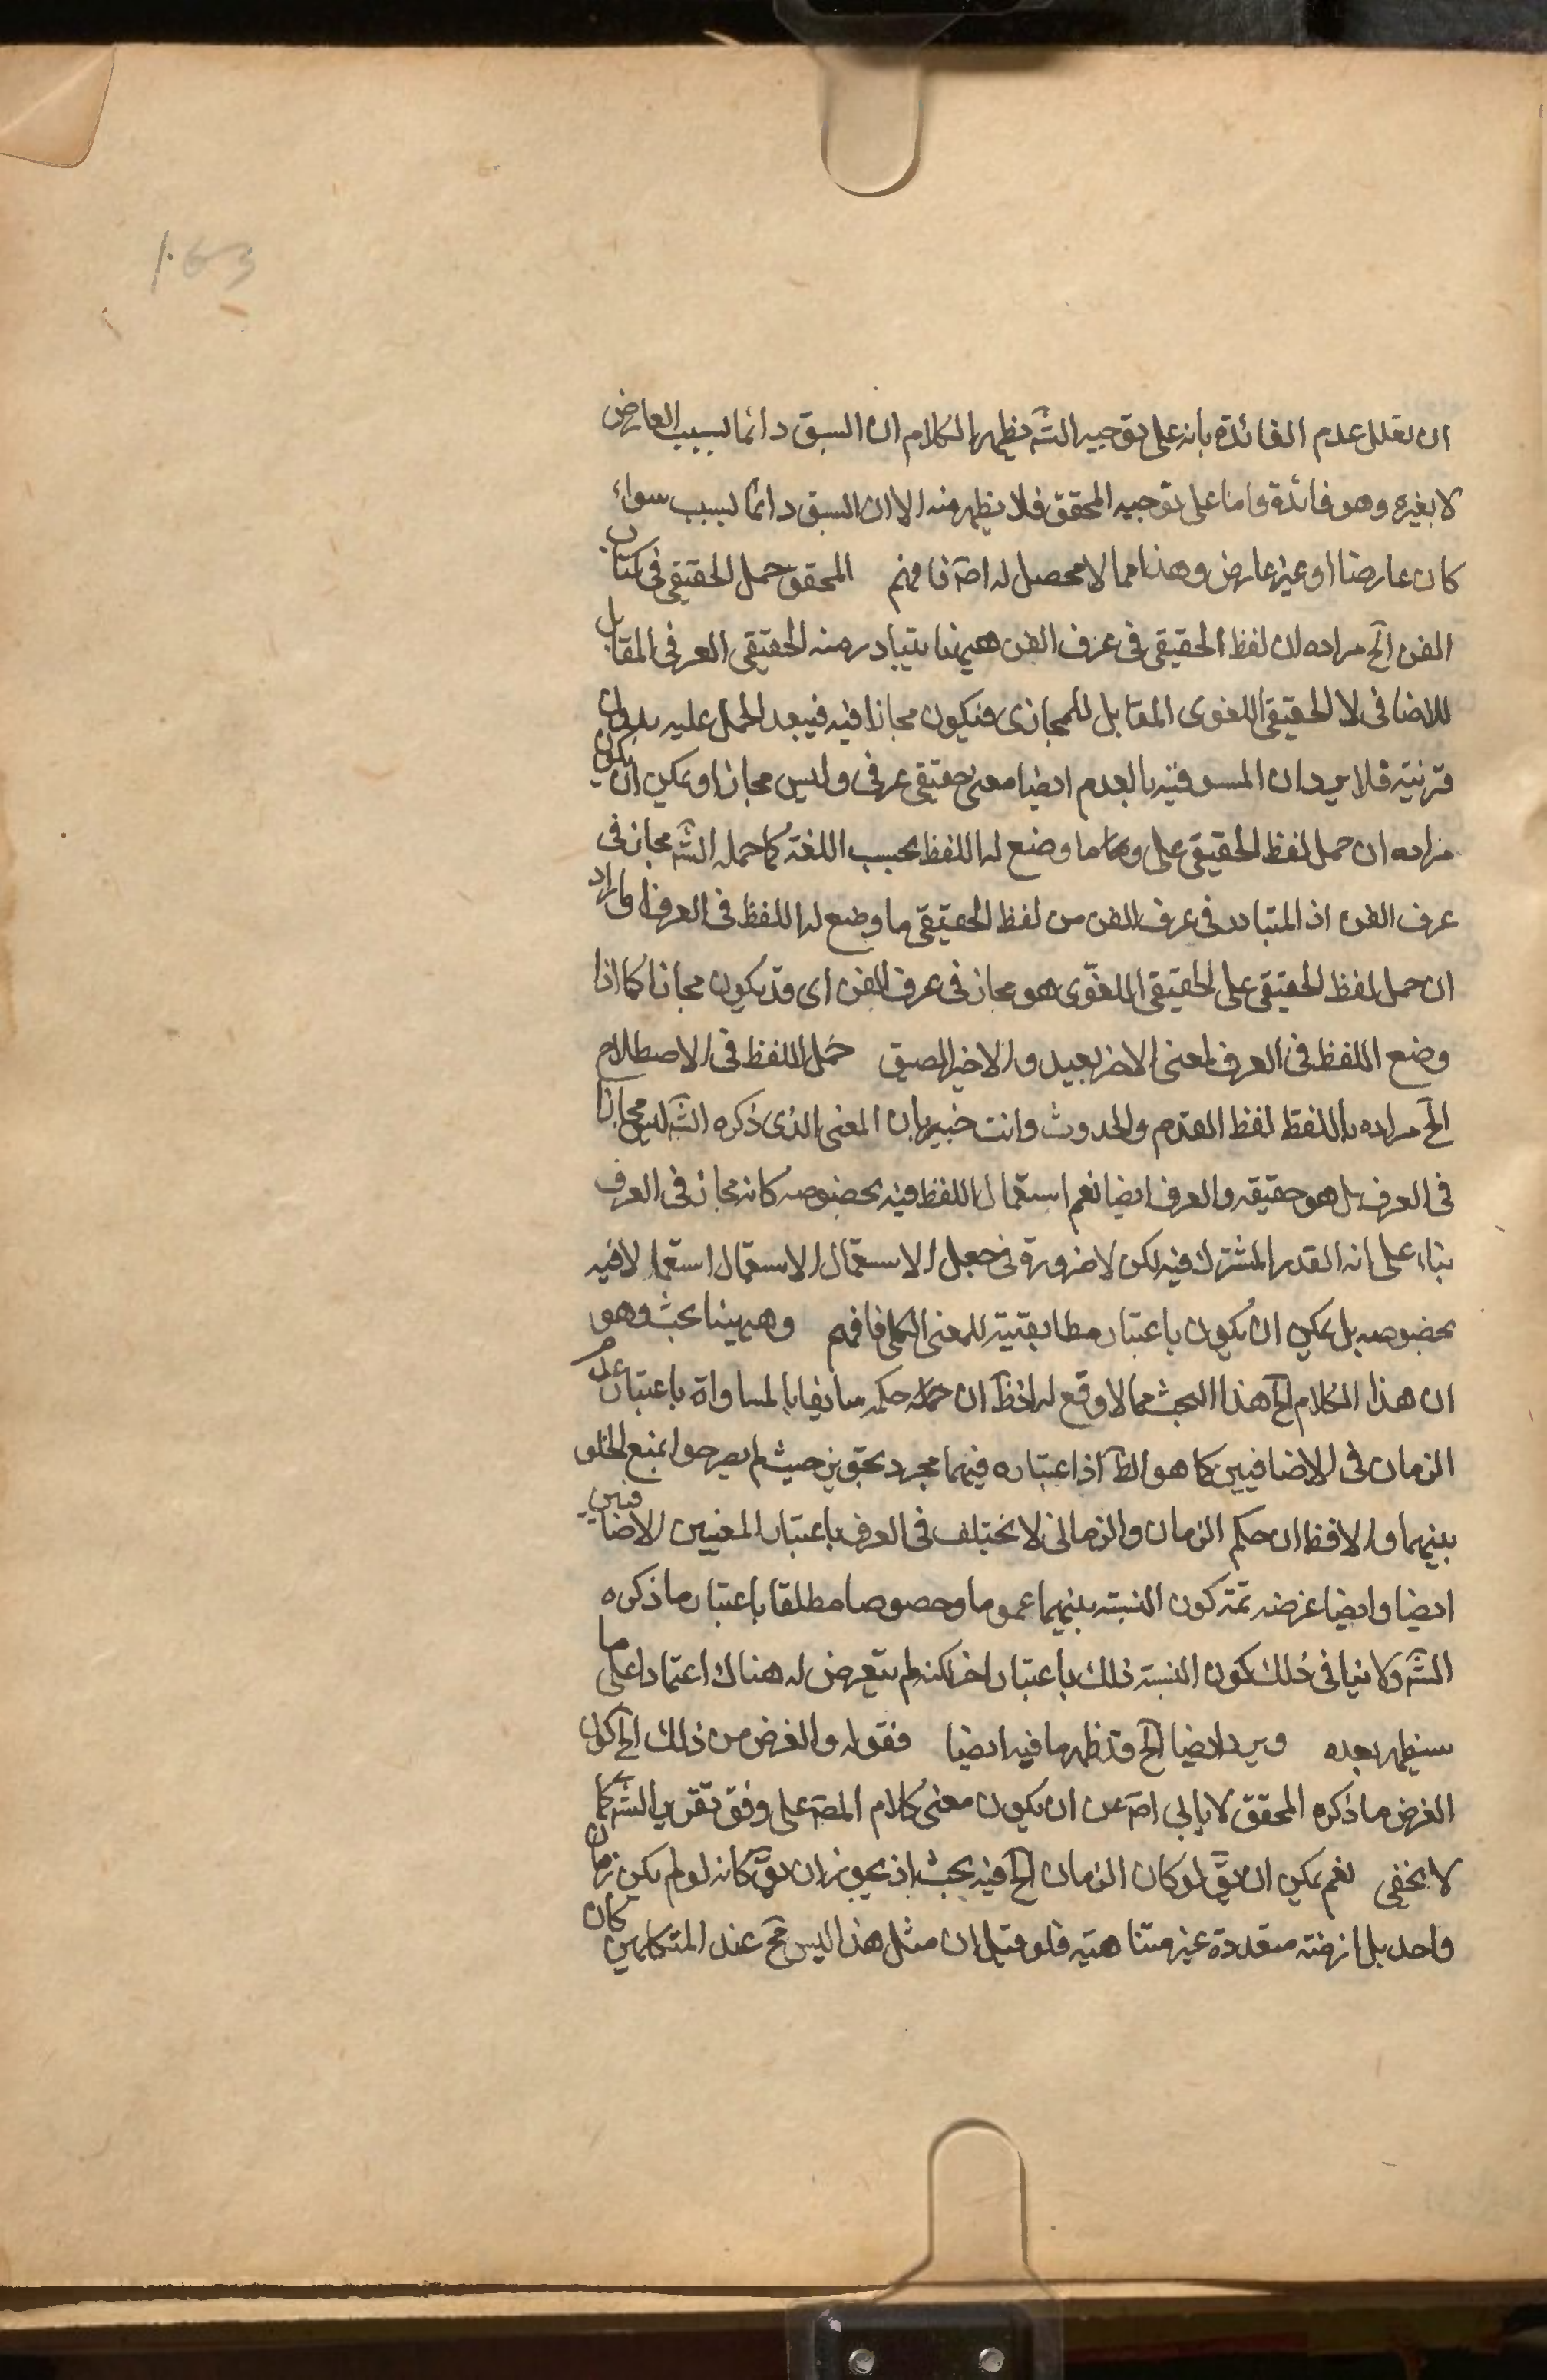 163
ان يعلل عدم الفائدة بانه على توجيه الشه يظهر الكلام ان السبق دائما لسبب العارض
لا بغيره وهو فائدة واما على توجيه المحقق فلا يظهر منه الا ان السبق دائما لسبب سواء
كان عارضا او غير عارض وهذا مما لا محصل له اصَه فافهم المحقق حمل الحقيقى فى كتاب
الفن الخ مراده ان لفظ الحقيقى فى عرف الفن ههنا يتبادر منه الحقيقى العرفى المقابل
للاضافى لا الحقيقى اللغوى المقابل للمجازى فيكون مجازا فيه فيبعد الحمل عليه بدون
قرينة فلا يرد ان المسبوقية بالعدم ايضا معنى حقيقى عرفى وليس مجازا ويمكن ان يكون
مراده ان حمل لفظ الحقيقى على ما وضع له اللفظ بحسب اللغة كما حمله الشه مجاز فى
عرف الفن اذ المتبادر فى عرف الفن من لفظ الحقيقى ما وضع له اللفظ فى العرف او اراد
ان حمل لفظ الحقيقى على الحقيقى اللغوى هو مجاز فى عرف الفن اى قد يكون مجازا كما اذا
وضع اللفظ فى العرف لمعنى الاخر بعيد والاخير الصيق حمل اللفظ فى الاصطلاح
الخ مراده باللفظ لفظ القدم والحدوث وانت خبير بان المعنى الذى ذكره الشه ليس مجازا
فى العرف بل هو حقيقه والعرف ايضا نعم استعمال اللفظ فيه بخصوصه كانه مجاز فى العرف
بناء على انه القدر المشترك فيه لكن لا ضرورة فى جعل الاستعمال الاستعمال استعمالا فيه
بخصوصه بل يمكن ان يكون باعتبار مطابقيته للمعنى الكلى فافهم وههنا بحث وهو
ان هذا الكلام الخ هذا البحث مما لا وقع له اذ ظَه ان حمله حكمه سابقا بالمساواة باعتبار عدم
الزمان فى الاضافيين كما هو الظَه اذ اعتباره فيهما مجرد تجويز حيث لم يصرحوا بمنع الخلو
بينهما والا فظَه ان حكم الزمان والزمانى لا يختلف فى العرف باعتبار المعنيين الاضافيين
ايضا وايضا غرضه ثمة كون النسبة بينهما عموما وخصوصا مطلقا باعتبار ما ذكره
الشه ولا ينافى ذلك كون النسبة ذلك باعتبار اخر لكنه لم يتعرض له هناك اعتمادا على ما
سيظهر بعده ويرد ايضا الخ قد ظهر ما فيه ايضا فقوله والغرض من ذلك الخ كون
الغرض ما ذكره المحقق لا يابى اصَه عن ان يكون معنى كلام المصَه على وفق تقرير الشه كما
لا يخفى نعم يمكن ان يقَ لو كان الزمان الخ فيه بحث اذ يجوز ان يقَ كانه لو لم يكن زمان
واحد بل ازمنة متعددة غير متناهيه فلو قيل ان مثل هذا ليس مح عند المتكلمين كان